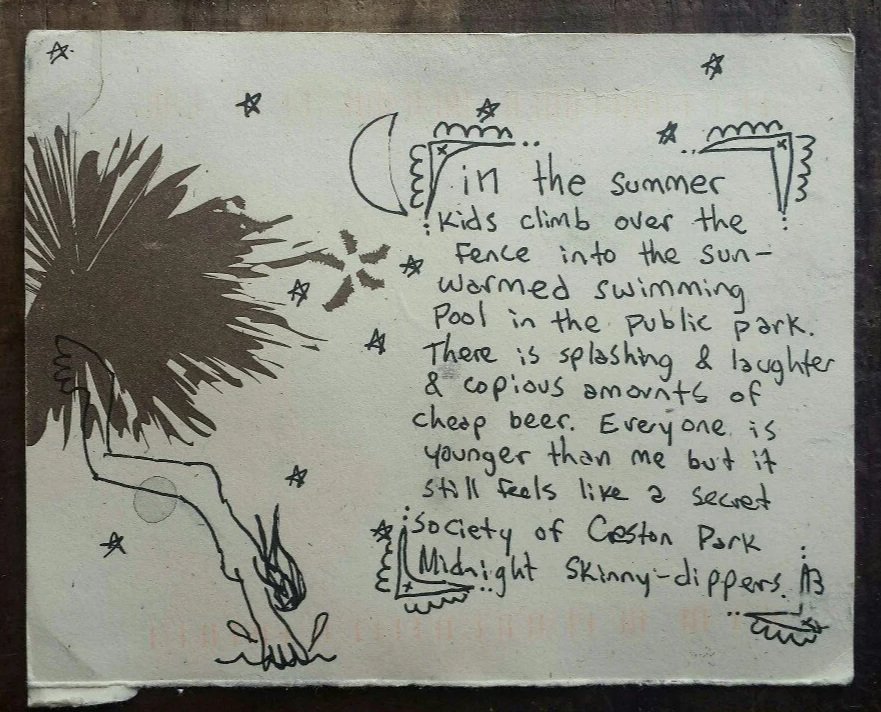 in the summer
kids climb over the
fence into the sun-
warmed swimming
pool in the public park.
There is splashing & laughter
& copious amounts of
cheap beer. Everyone is
younger than me but it
still feels like a secret
society of Creston Park
Midnight Skinny-dippers. AB